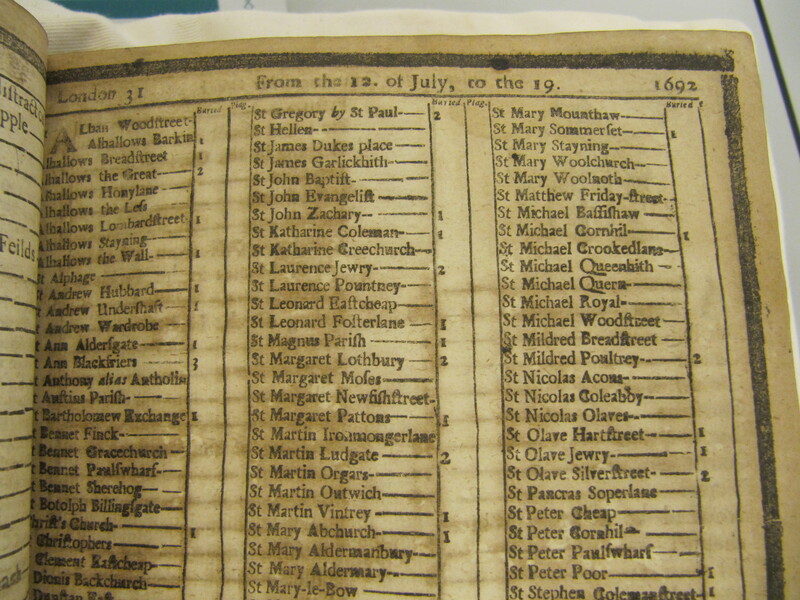 London 31 From the 12. of July, to the 19. 1692
Buried Plag.
Alban Woodſtreet-
Alhallows Barkin 1
lhallows Breadſtreet 1
lhallows the Great 2
lhallows Honylane
lhallows the Leſs
lhallows Lombardſtreet 1
lhallows Stayning
lhallows the Wall 1
t Alphage
t Andrew Hubbard 1
t Andrew Underſhaft 1
t Andrew Wardrobe
t Ann Alderſgate 1
t Ann Blackfriers 3
t Anthony alias Antholin
t Auſtins Pariſh
t Bartholomew Exchange 1
t Bennet Finck
t Bennet Gracechurch
t Bennet Paulſwharf
t Bennet Sherehog
t Botolph Billingſgate
hriſt's Church 1
Chriſtophers
Clement Eaſtcheap
Dionis Backchurch
Dunſtan Eaſt
Buried Plag.
St Gregory by St Paul 2
St Hellen
St James Dukes place
St James Garlickhith
St John Baptiſt
St John Evangeliſt
St John Zachary 1
St Katharine Coleman 1
St Katharine Creechurch
St Laurence Jewry 2
St Laurence Pountney
St Leonard Eaſtcheap
St Leonard Foſterlane 1
St Magnus Pariſh 1
St Margaret Lothbury 2
St Margaret Moſes
St Margaret Newfiſhſtreet-
St Margaret Pattons 1
St Martin Ironmongerlane
St Martin Ludgate 2
St Martin Orgars
St Martin Outwich
St Martin Vintrey 1
St Mary Abchurch 1
St Mary Aldermanbury
St Mary Aldermary
St Mary-le-Bow
Buried
St Mary Mounthaw
St Mary Sommerſet 1
St Mary Stayning
St Mary Woolchurch
St Mary Woolnoth
St Matthew Friday-ſtreet
St Michael Baſſiſhaw
St Michael Cornhil 1
St Michael Crookedlane
St Michael Queenhith
St Michael Quern
St Michael Royal
St Michael Woodſtreet
St Mildred Breadſtreet
St Mildred Poultrey 2
St Nicolas Acons
St Nicolas Coleabby
St Nicolas Olaves
St Olave Hartſtreet 1
St Olave Jewry 1
St Olave Silverſtreet 2
St Pancras Soperlane
St Peter Cheap
St Peter Cornhil
St Peter Paulſwharf
St Peter Poor 1
St Stephen Colemanſtreet 1
Feilds